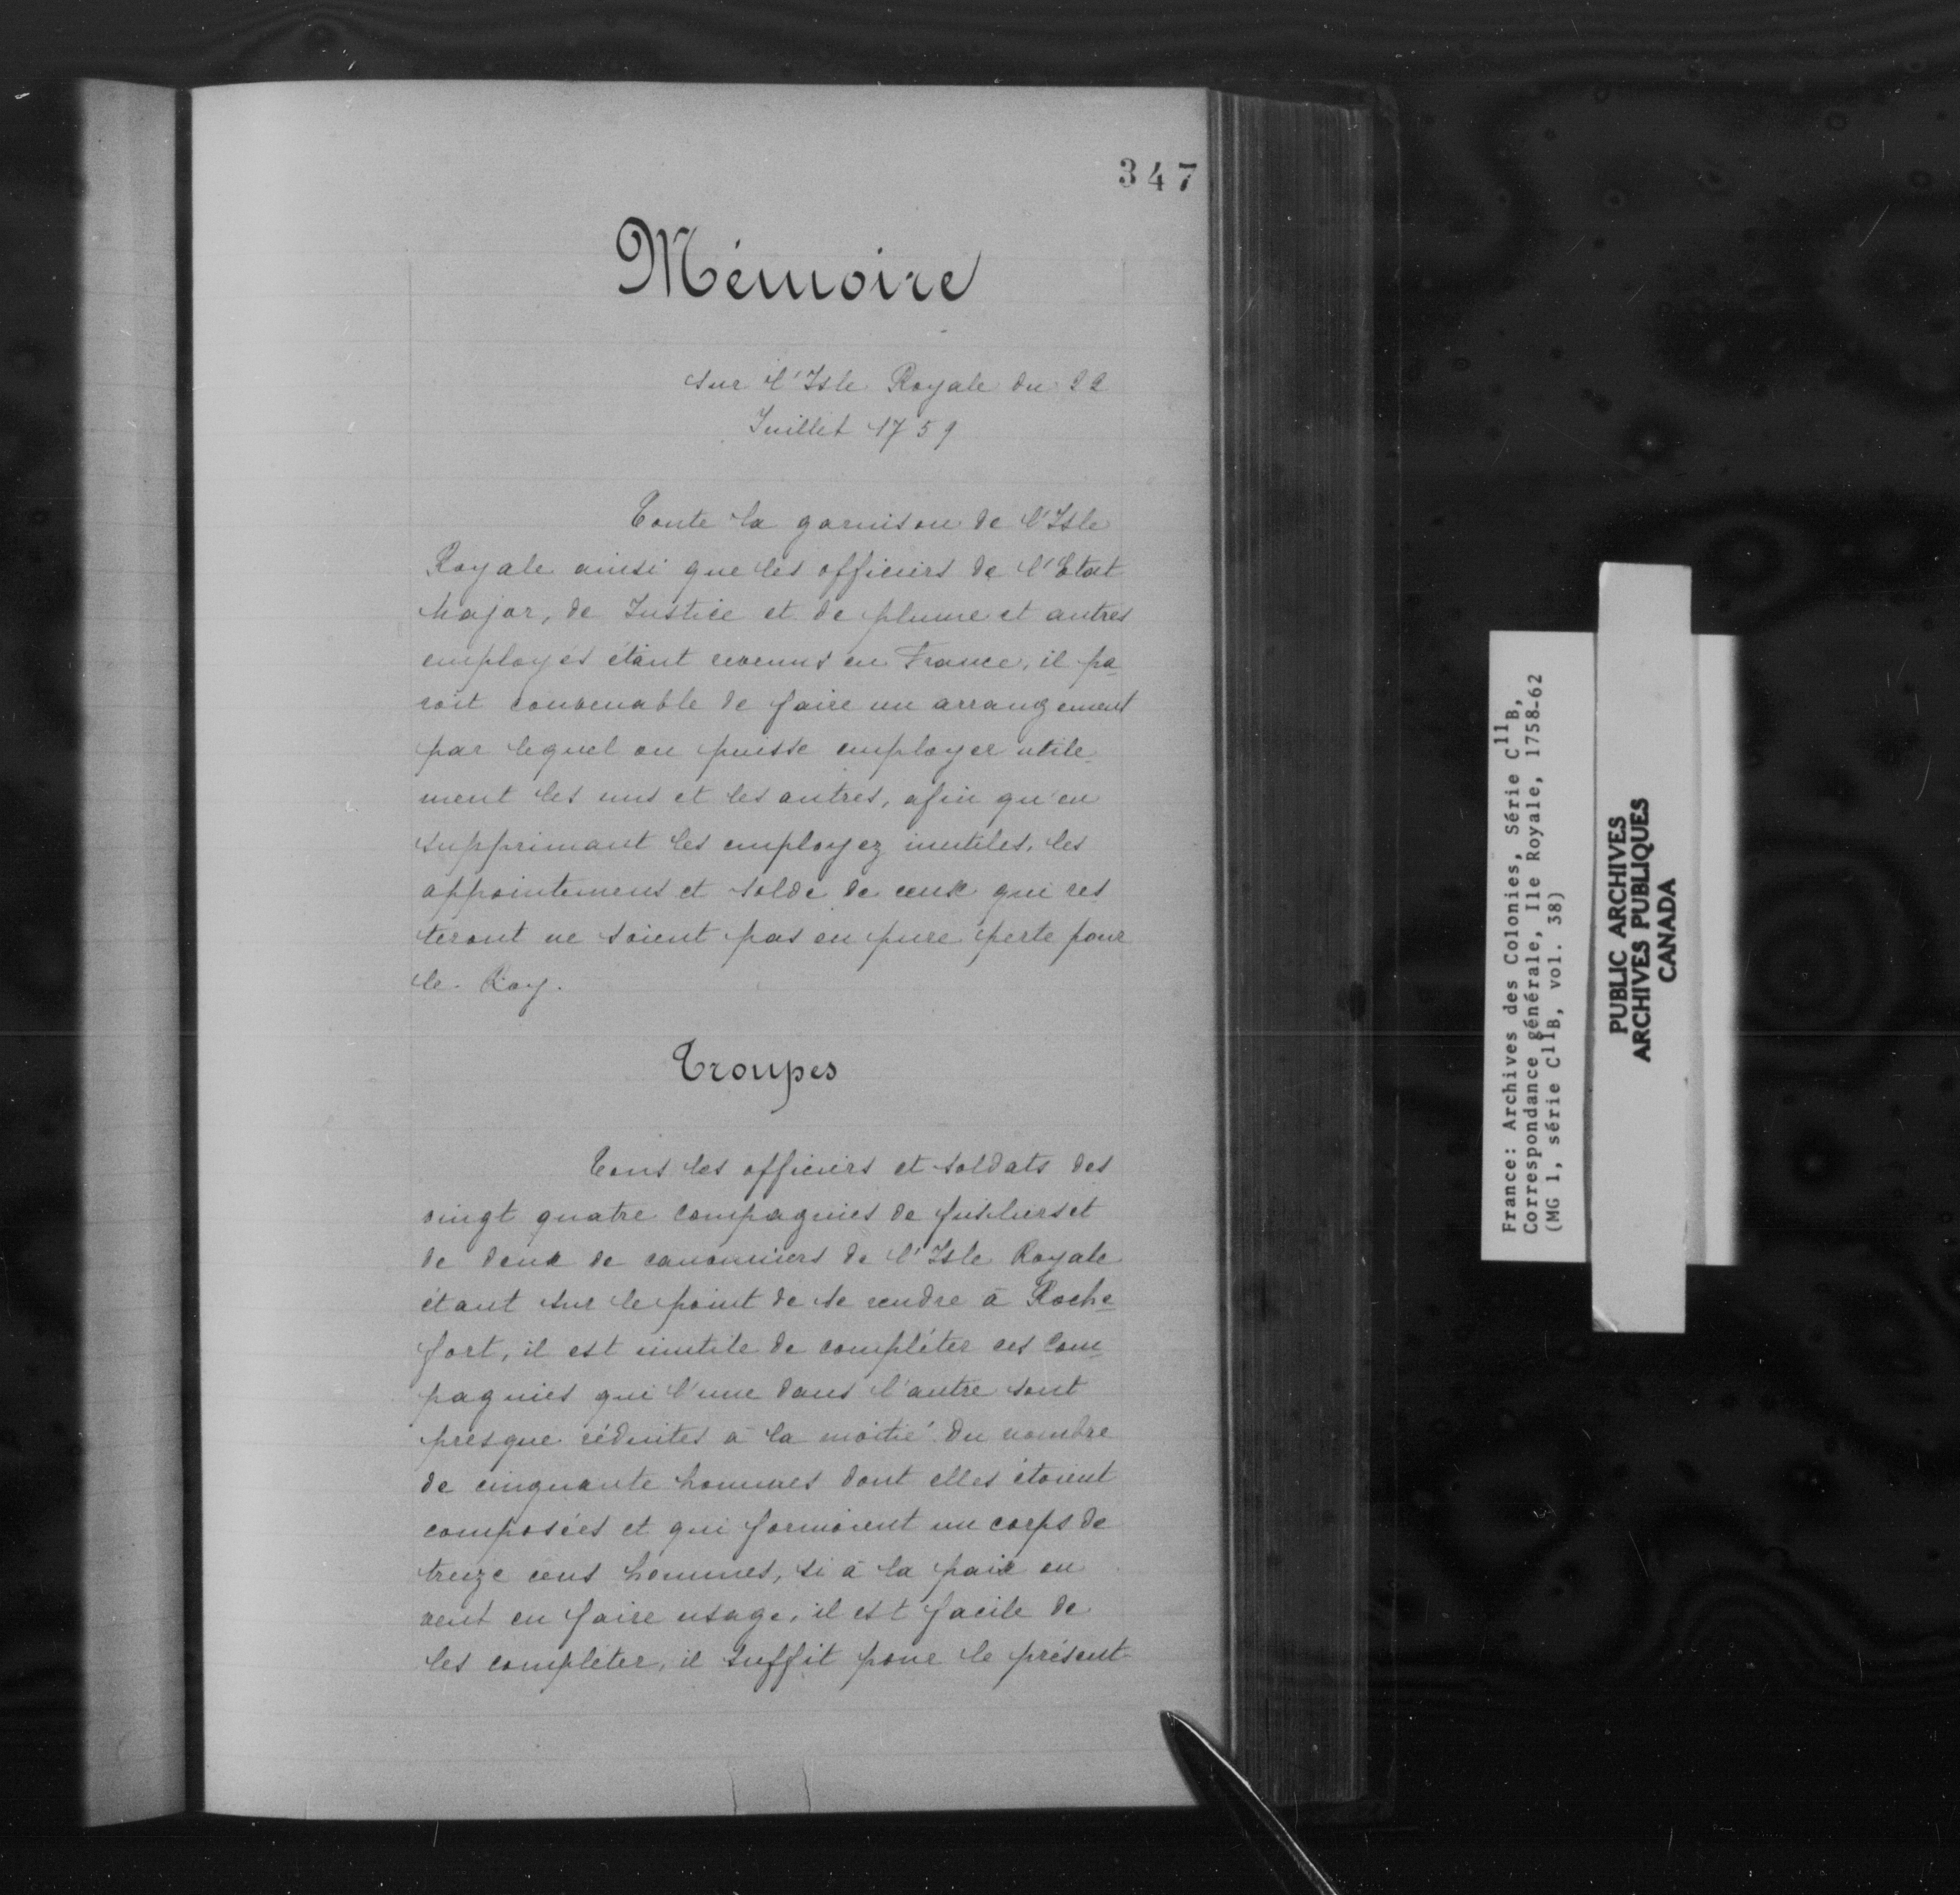 347
Mémoire
sur l'Isle Royale du 22
Juillet 1759
Toute la garnison de l'Isle
Royale ainsi que les officiers de l'Etat
Major, de Justice et de plume et autres
employés étant revenus en France, il pa
roit convenable de faire un arrangement
par lequel on puisse employer utile-
ment les uns et les autres, afin qu'en
supprimant les employez inutiles, les
appointemens et solde de ceux qui res
teront ne soient pas en pure perte pour
le Roy.
Troupes
Tous les officiers et soldats des
vingt quatre compagnies de fusiliers et
de deux de canonniers de l'Isle Royale
étant sur le point de se rendre à Roche-
fort, il est inutile de compléter ces com-
pagnies qui l'une dans l'autre sont
presque réduites à la moitié du nombre
de cinquante hommes dont elles étoient
composées et qui formoient un corps de
treize cens hommes, si à la paix on
veut en faire usage, il est facile de
les compléter, il suffit pour le présent
France: Archives des Colonies, Série C11B,
Correspondance générale, Ile Royale, 1758-62
(MG 1, série C11B, vol. 38)
PUBLIC ARCHIVES
ARCHIVES PUBLIQUES
CANADA